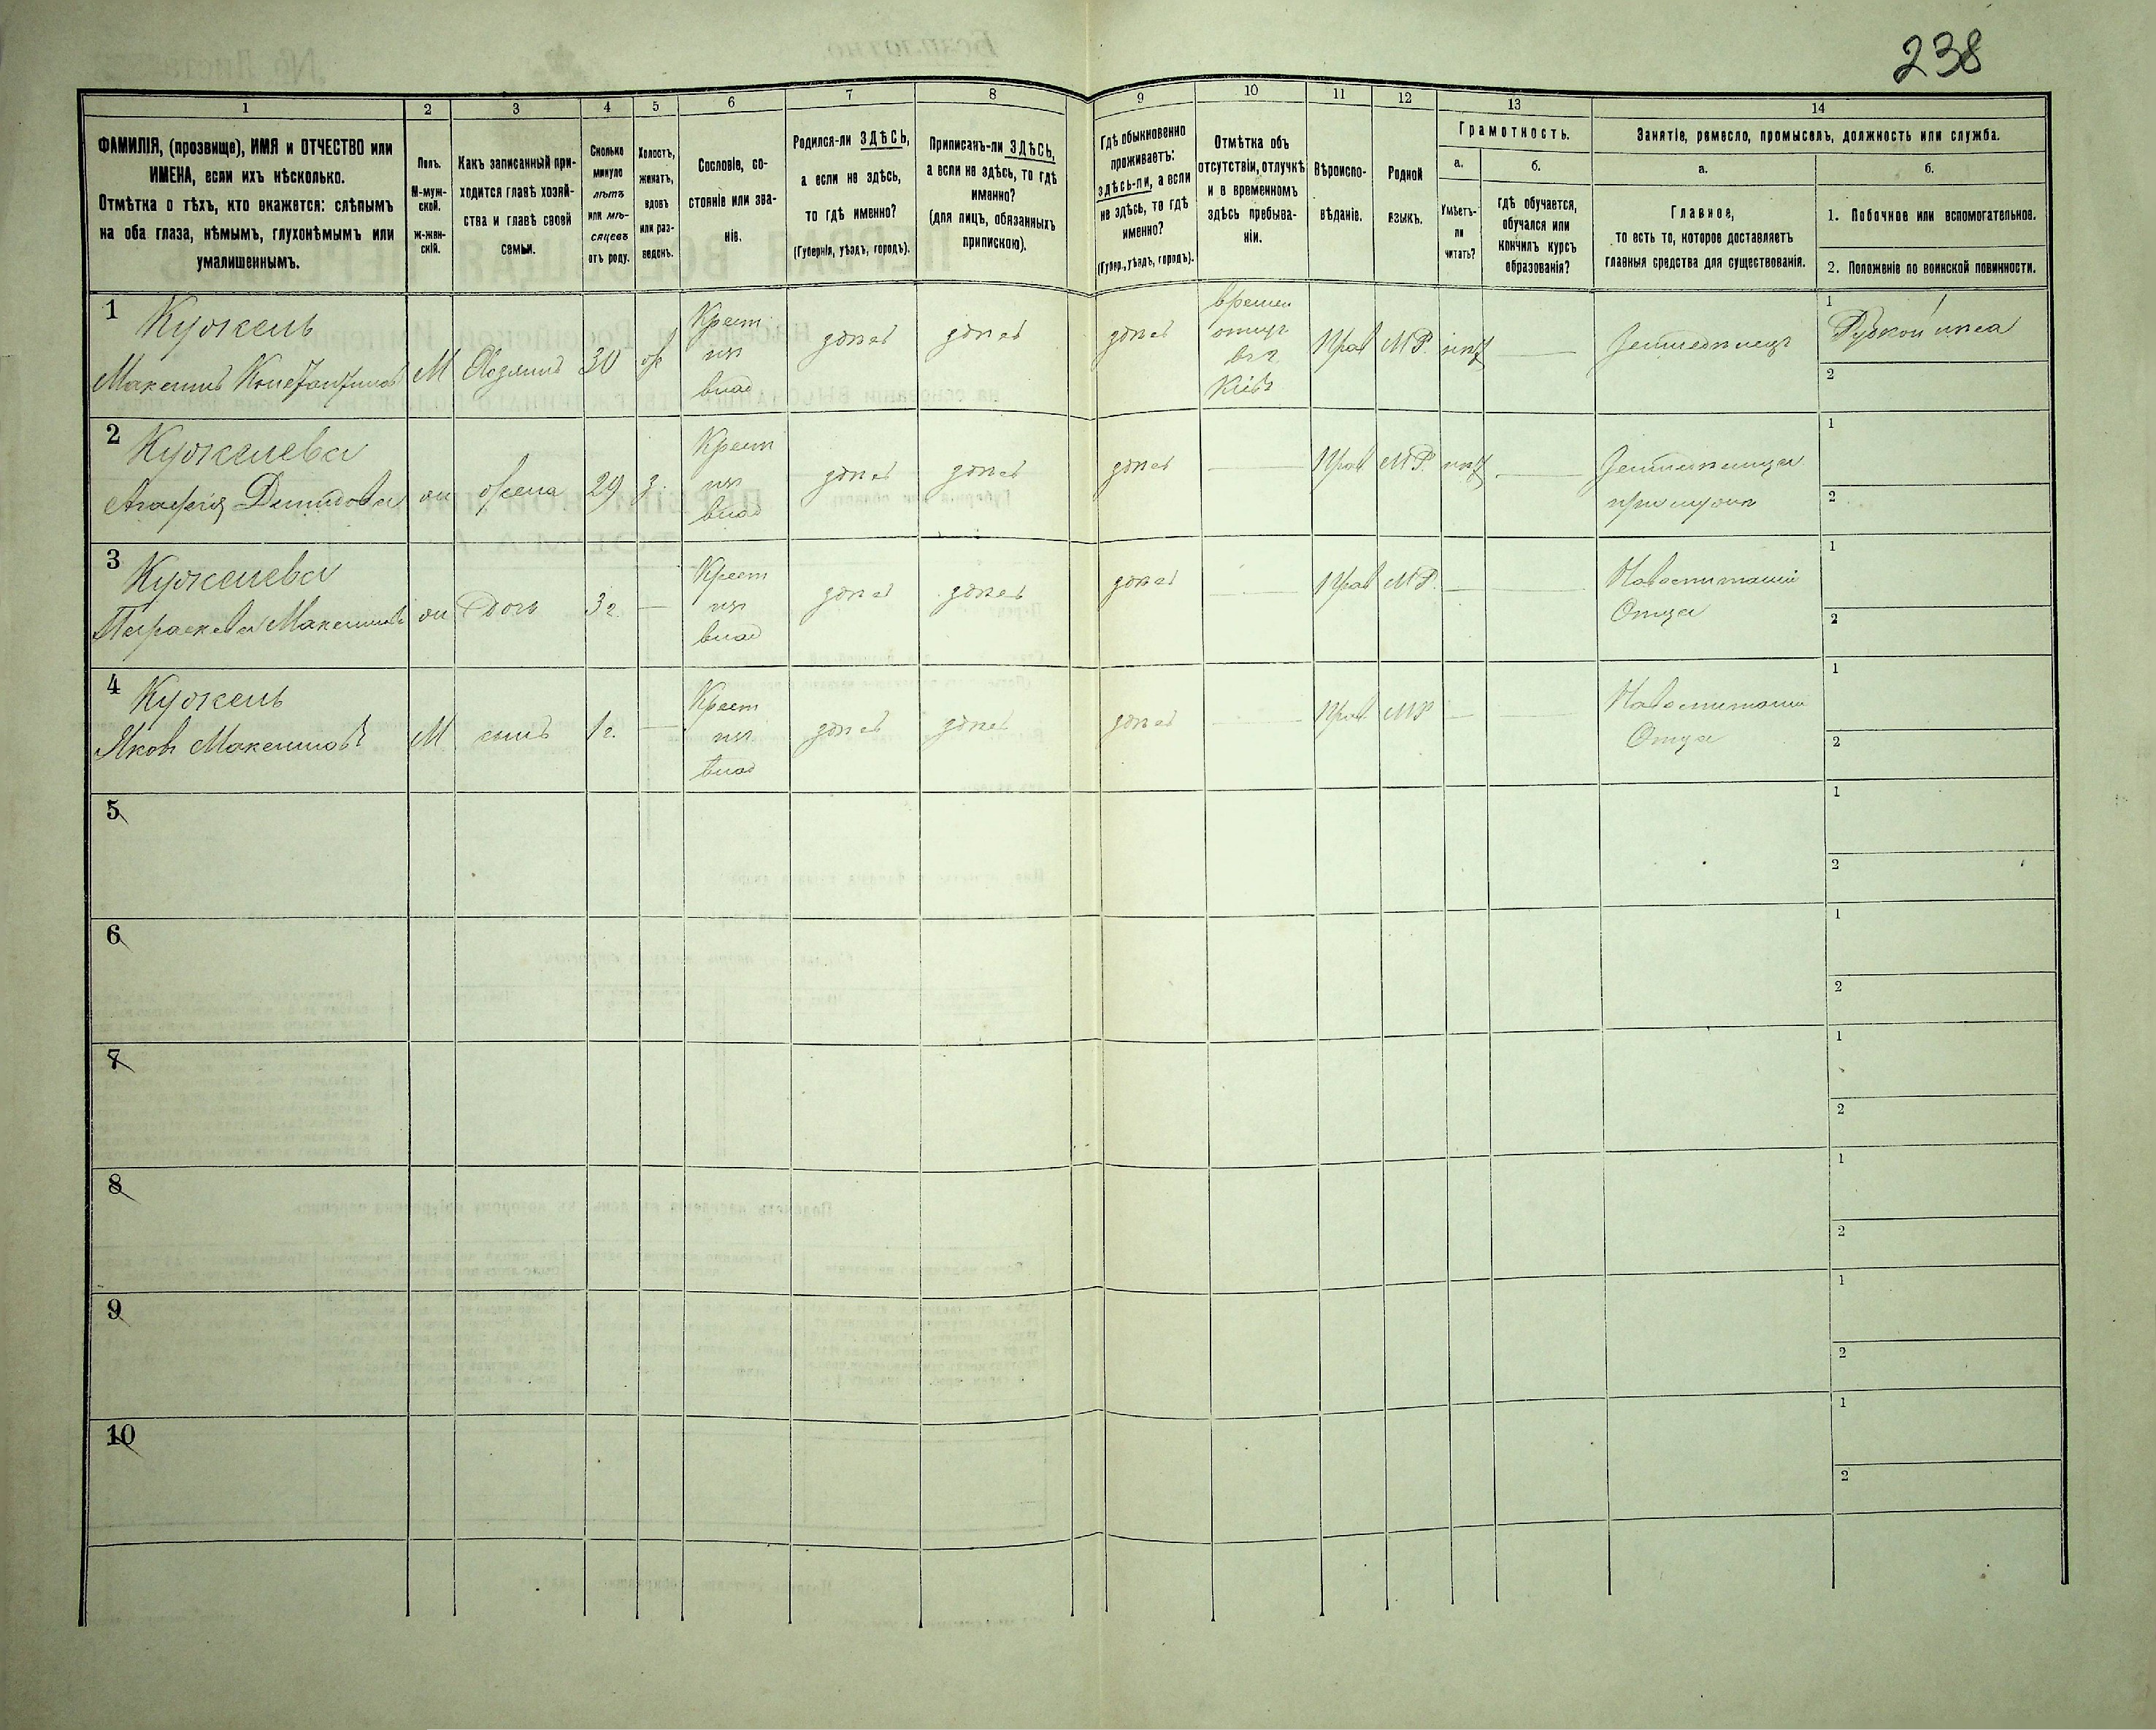 238
1
2
3
4
5
6
7
8
9
10
11
12
13
14
ФАМИЛІЯ, (прозвище), ИМЯ и ОТЧЕСТВО или
ИМЕНА, если ихъ нѣсколько.
Отмѣтка о тѣхъ, кто окажется: слѣпымъ
на оба глаза, нѣмымъ, глухонѣмымъ или
умалишеннымъ.
Полъ.
М-муж-
ской.
ж-жен-
скій.
Какъ записанный при-
ходится главѣ хозяй-
ства и главѣ своей
семьи.
Сколько
минуло
лѣтъ
или мѣ-
сяцевъ
отъ роду.
Холостъ,
женатъ,
вдовъ
или раз-
веденъ.
Сословіе, со-
стояніе или зва-
ніе.
Родился-ли ЗДѢСЬ,
а если не здѣсь,
то гдѣ именно?
(Губернія, уѣздъ, городъ).
Приписанъ-ли ЗДѢСЬ,
а если не здѣсь, то гдѣ
именно?
(для лицъ, обязанныхъ
припискою).
Гдѣ обыкновенно
проживаетъ:
здѣсь-ли, а если
не здѣсь, то гдѣ
именно?
(Губер., уѣздъ, городъ).
Отмѣтка объ
отсутствіи, отлучкѣ
и о временномъ
здѣсь пребыва-
ніи.
Вѣроиспо-
вѣданіе.
Родной
языкъ.
Грамотность.
а.
Умѣетъ-
ли
читать?
б.
гдѣ обучается,
обучался или
кончилъ курсъ
образованія?
Занятіе, ремесло, промыселъ, должность или служба.
а.
Главное,
то есть то, которое доставляетъ
главныя средства для существованія.
б.
1. Побочное или вспомогательное.
2. Положеніе по воинской повинности.
1
Кужель
Максимъ
М
Хозяинъ
30
ж
Крест
из
влад
здѣсь
здѣсь
здѣсь
времен
в г
Кіевѣ
Прав
М Р.
нѣт
Земледѣлецъ
1
2
2
Кужелева
Агафія Демидова
ж
жена
29
з.
Крест
из
влад
здѣсь
здѣсь
здѣсь
Прав
М Р.
нѣт
1
2
3
Кужелева
Параскева
ж
Дочь
3 г.
Крест
из
влад
здѣсь
здѣсь
здѣсь
Прав
М Р.
Отца
1
2
4
Кужель
Яков Максимовъ
М
сынъ
1 г.
Крест
из
влад
здѣсь
здѣсь
здѣсь
Прав
М Р
Отца
1
2
5
1
2
6
1
2
7
1
2
8
1
2
9
1
2
10
1
2